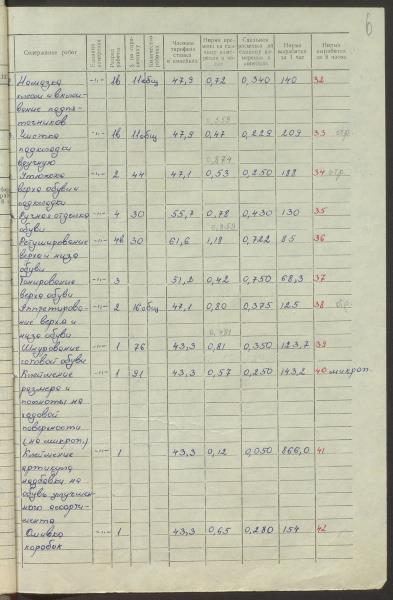 6
Содержание работ
Единица измерения
Разряд работы
Часовая тарифная ставка в копейках
Норма выработки за 1 час
Норма выработки за 8 часов
Намазка -"- 1в 11 общ 47,9 0,72 0,340 140 32
клеем и вклеи-
вание подпя-
точников 0,559
Чистка -"- 1в 11 общ 47,9 0,47 0,229 209 33 отр.
подкладки
вручную 0,874
Утюжка -"- 2 44 47,1 0,53 0,250 188 34 отр.
верха обуви и
подкладки
Ручная отделка -"- 4 30 55,7 0,78 0,430 130 35
обуви 0,859
Ретуширование -"- 4в 30 61,6 1,18 0,722 85 36
верха и низа
обуви
Тонирование -"- 3 51,2 0,42 0,750 68,3 37
верха обуви
Аппретирова- -"- 2 16 общ 47,1 0,80 0,375 125 38 отр.
ние верха и
низа обуви 0,481
Шнурование -"- 1 76 43,3 0,81 0,350 123,7 39
готовой обуви
Клеймение -"- 1 91 43,3 0,57 0,250 143,2 40 микроп.
размера и
полноты на
ходовой
поверхности
(на микроп.)
Клеймение -"- 1 43,3 0,12 0,050 866,0 41
артикула
надбавки на
обувь улучшен-
ного ассорти-
мента
Ошивка -"- 1 43,3 0,65 0,280 154 42
коробок